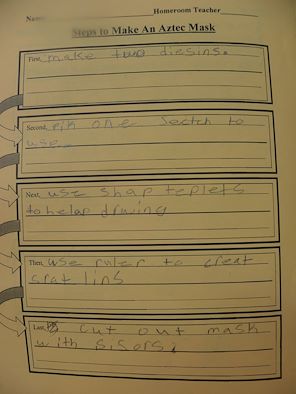 Name
Homeroom Teacher
Steps to Make An Aztec Mask
First, make two diesins.
Second, pik one sectch to
use.
Next, use shap teplets
to helap drwing
Then, use ruler to creat
srat lins
Last, cut out mask
with sisors.